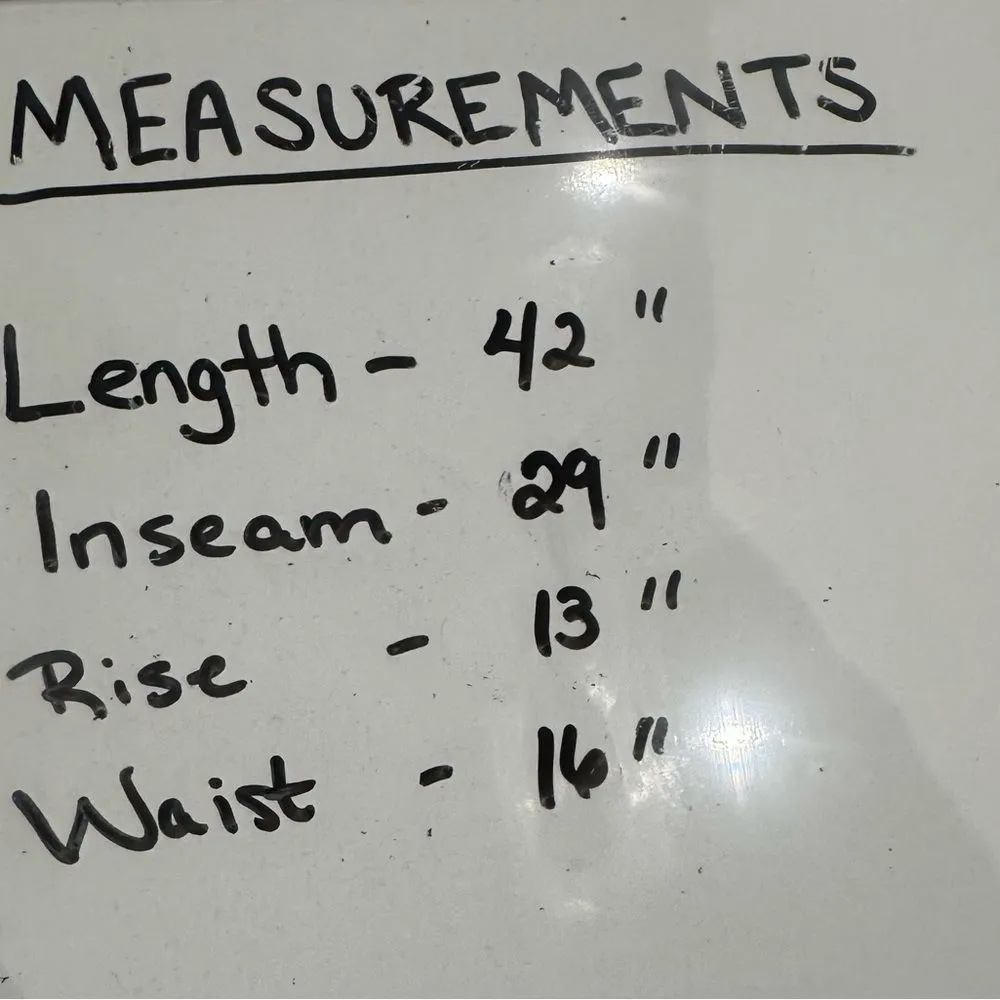 MEASUREMENTS
Length - 42 "
Inseam - 29 "
Rise - 13 "
Waist - 16 "